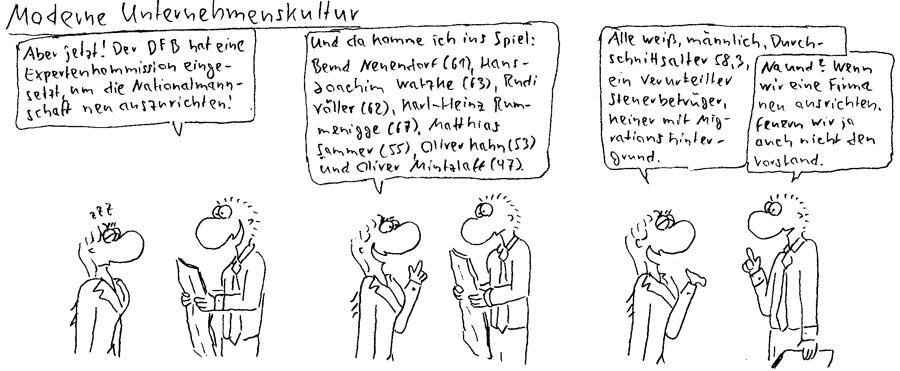 Moderne Unternehmenskultur
Aber jetzt! Der DFB hat eine
Expertenkommission einge-
setzt, um die Nationalmann-
schaft neu auszurichten!
zzz
Und da komme ich ins Spiel:
Bernd Neuendorf (61), Hans-
Joachim Watzke (63), Rudi
Völler (62), Karl-Heinz Rum-
menigge (67), Matthias
Sammer (55), Oliver Kahn (53)
und Oliver Mintzlaff (47).
Alle weiß, männlich, Durch-
schnittsalter 58,3,
ein verurteilter
Steuerbetrüger,
keiner mit Mig-
rationshinter-
grund.
Na und? Wenn
wir eine Firma
neu ausrichten,
feuern wir ja
auch nicht den
Vorstand.